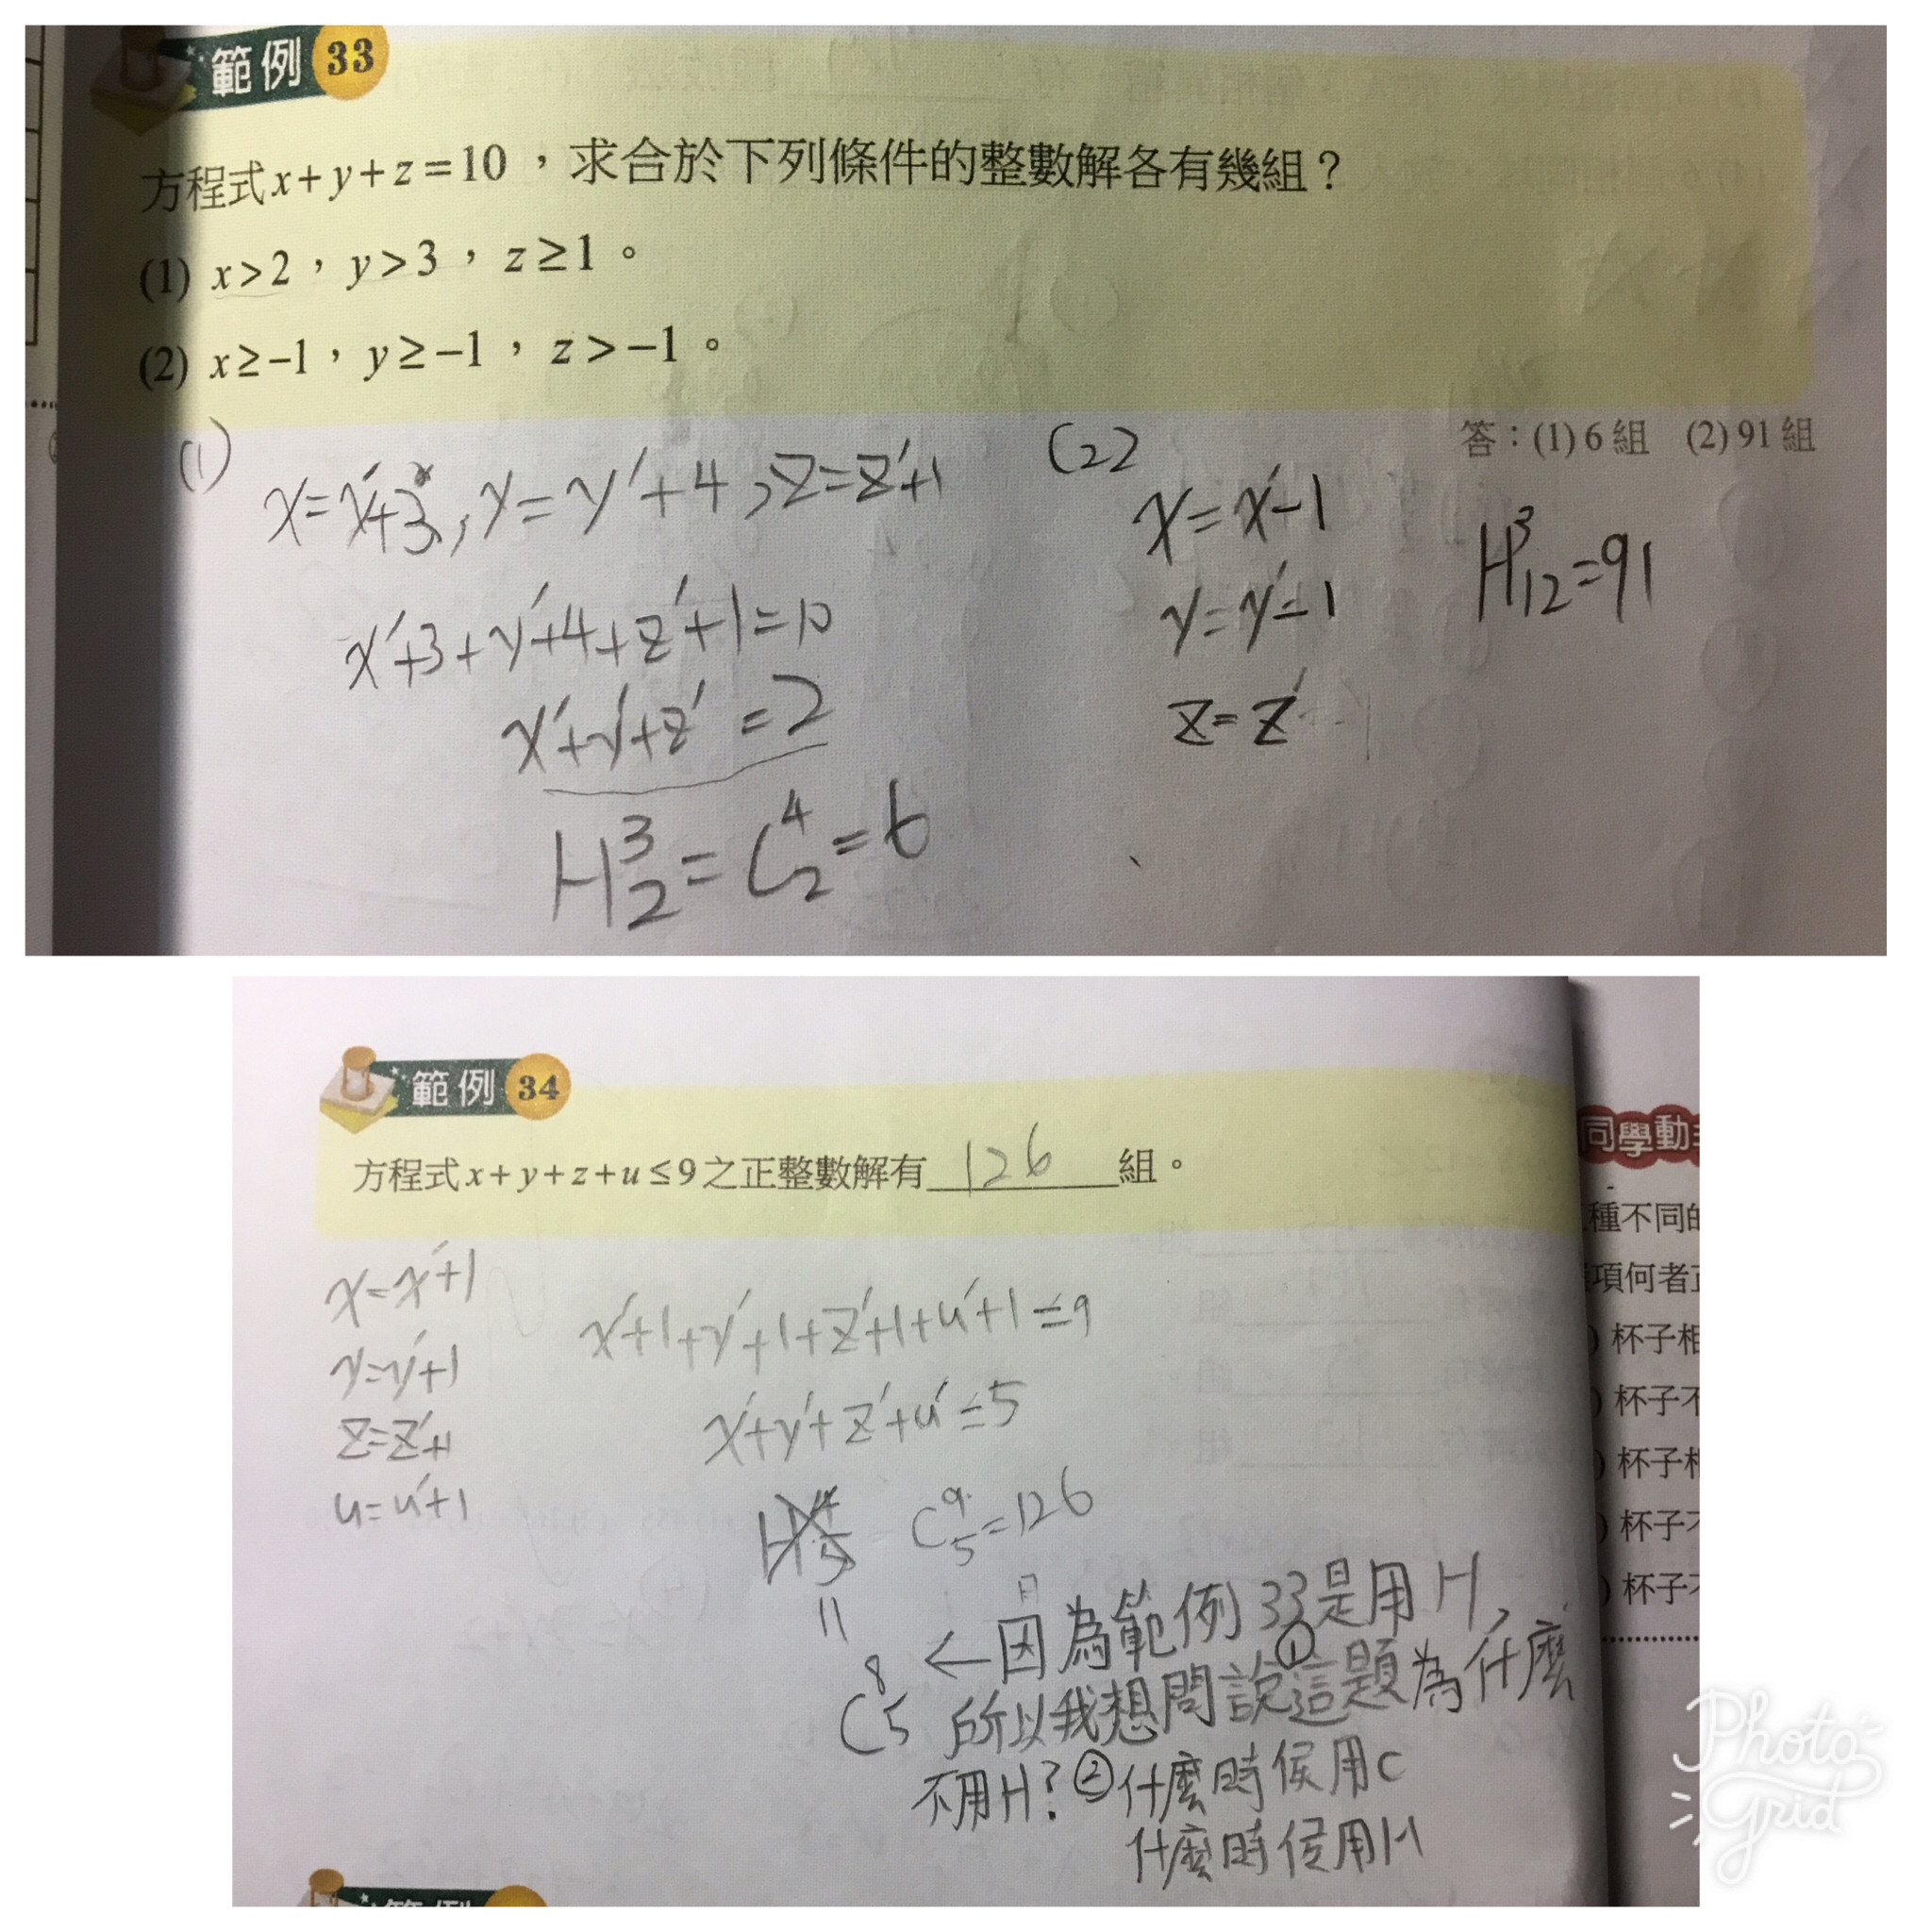 範例 33
方程式x+y+z=10，求合於下列條件的整數解各有幾組？
(1) x>2，y>3，z≥1。
(2) x≥-1，y≥-1，z>-1。
答：(1) 6 組 (2) 91 組
(1)
x=x'+3,y=y'+4,z=z'+1
x'+3+y'+4+z'+1=10
x'+y'+z'=2
H³₂=C⁴₂=6
(2)
x=x'-1
y=y'-1
z=z'
H³₁₂=91
範例 34
方程式x+y+z+u≤9之正整數解有 126 組。
x=x'+1
y=y'+1
z=z'+1
u=u'+1
x'+1+y'+1+z'+1+u'+1≤9
x'+y'+z'+u'≤5
H⁴₅ C⁹₅=126
=
C⁸₅
←因為範例33是用H,
所以我想問說①這題為什麼
不用H?②什麼時候用C
什麼時侯用H
同學動
種不同的
項何者正
杯子相
杯子不
杯子相
杯子不
杯子不
範例
Photo
Grid